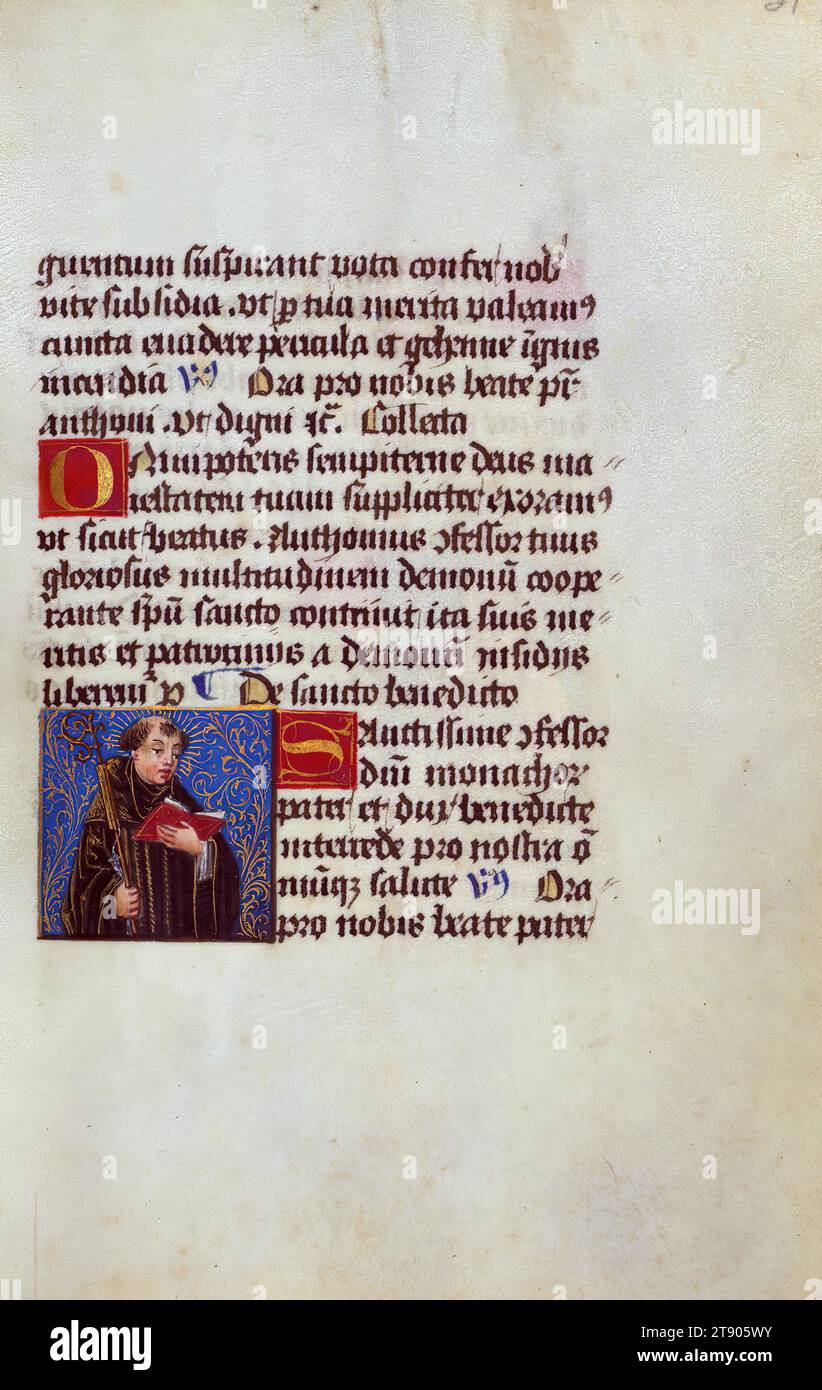 guentum suspirant vota confer nob
vite subsidia . vt p tua merita valeamꝰ
cuncta euadere pericula et gehenne ignis
incendia Vꝰ Ora pro nobis beate pr̄
anthoni . vt digni ⁊c̄. Collecta
Omnipotens sempiterne deus ma〃
iestatem tuam suppliciter exoramꝰ
vt sicut beatus . Anthonius ↄfessor tuus
gloriosus multitudinem demonū coope〃
rante spū sancto contriuit ita suis me〃
ritis et patrociniis a demonū insidiis
liberemꝰ p De sancto benedicto
Sanctissime ↄfessor
dn̄i monachor
pater et dux benedicte
intercede pro nostra o̅
niūqꝫ salute Vꝰ Ora〃
pro nobis beate pater
alamy
Image ID: 2T905WY
www.alamy.com